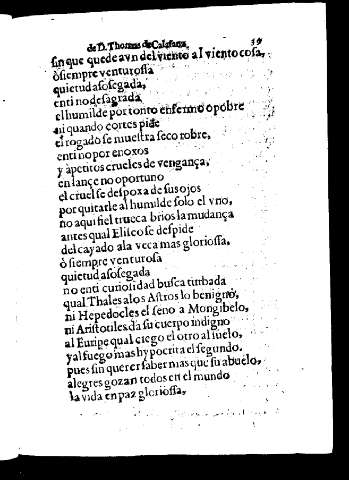 de D. Thomas de Calafana. 39
sin que quede avn del viento al viento cosa,
ò siempre venturossa
quietud asosegada,
en ti no desagrada
el humilde por tonto enfermo o pobre
ni quando cortes pide
el rogado se muestra seco robre,
en ti no por enoxos
y apetitos crueles de vengança,
en lançe no oportuno
el cruel se despoxa de sus ojos
por quitarle al humilde solo el vno,
no aqui fiel trueca brios la mudança
antes qual Eliseo se despide
del cayado a la veca mas gloriossa.
ò siempre venturosa
quietud asosegada
no en ti curiosidad busca turbada
qual Thales a los Astros lo benigno,
ni Hepedocles el seno a Mongibelo,
ni Aristoules da su cuerpo indigno
al Euripe qual ciego el otro al suelo,
y al fuego mas hypocrita el segundo.
pues sin querer saber mas que su abuelo,
alegres gozan todos en el mundo
la vida en paz gloriossa,